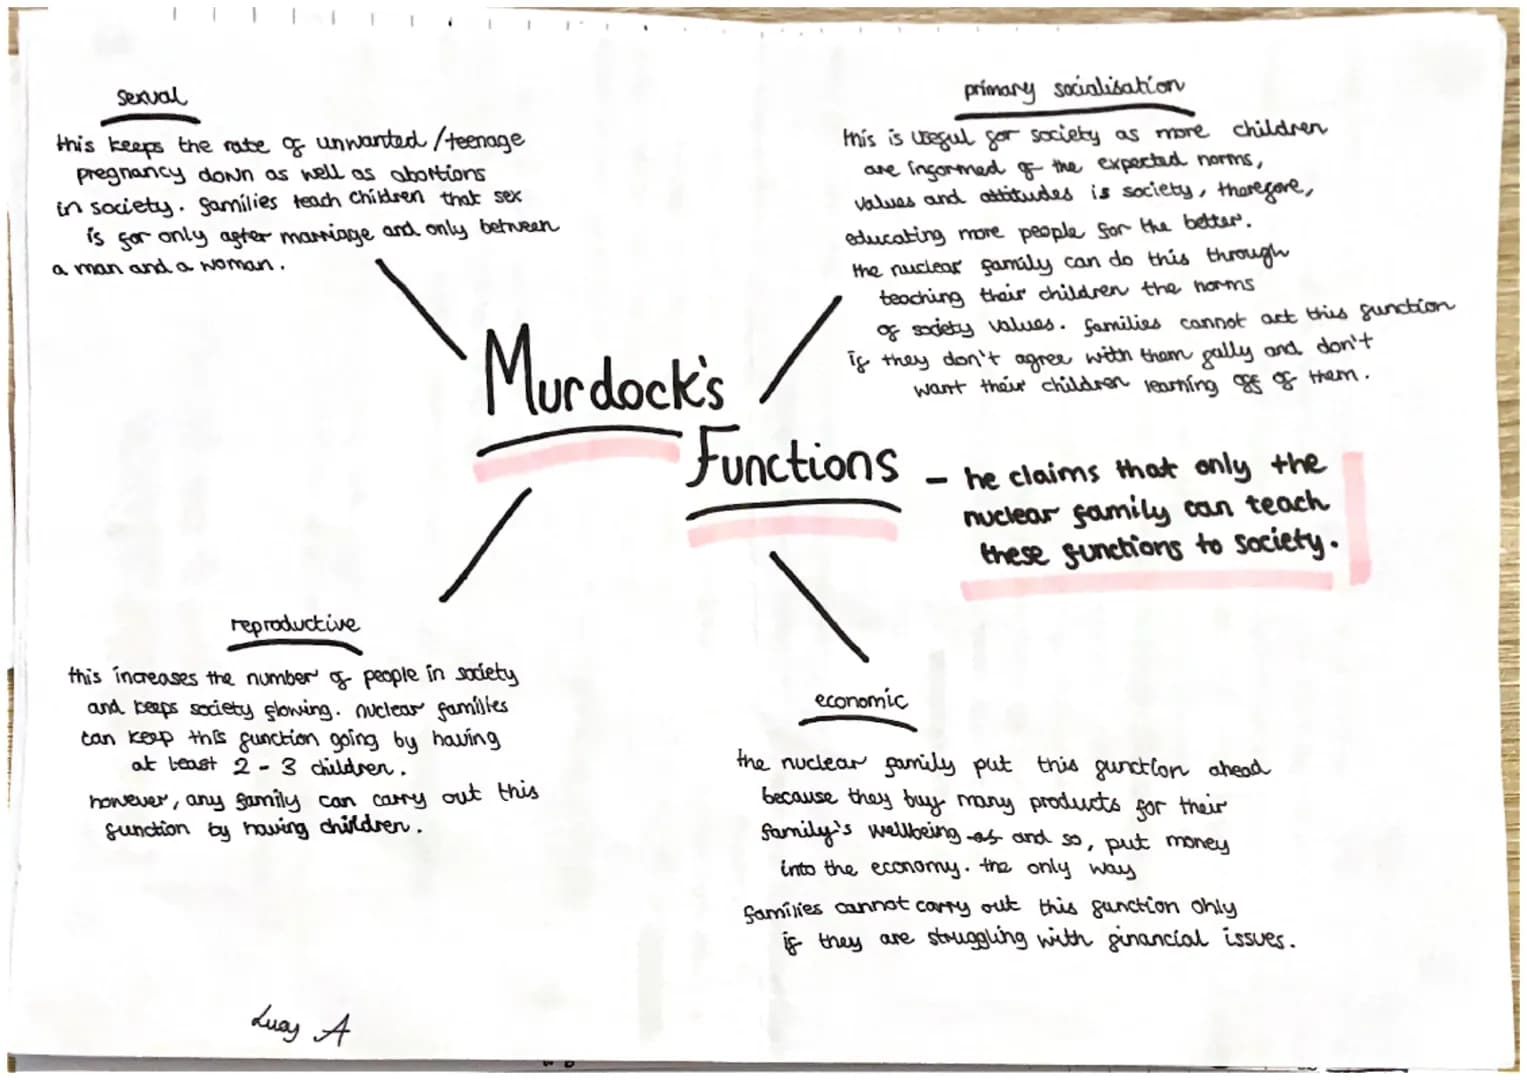 sexual
this keeps the rate of unwanted/teenage
pregnancy down as well as abortions
in society. families teach children that sex
is for only after marriage and only between
a man and a woman.
primary socialisation
this is useful for society as more children
are informed of the expected norms,
values and attitudes is society, therefore,
educating more people for the better.
the nuclear family can do this through
teaching their children the norms
of society values. families cannot act this function
if they don't agree with them fully and don't
want their children learning off of them.
Murdock's
Functions
- he claims that only the
nuclear family can teach
these functions to society.
reproductive
this increases the number of people in society
and keeps society flowing. nuclear families
can keep this function going by having
at least 2 - 3 children.
however, any family can carry out this
function by having children.
economic
the nuclear family put this function ahead
because they buy many products for their
family's wellbeing as and so, put money
into the economy. the only way
families cannot carry out this function only
if they are struggling with financial issues.
Lucy A